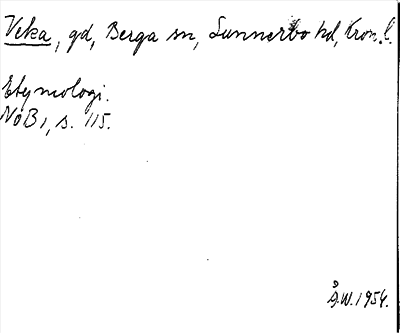 Veka, gd, Berga sn, Sunnerbo hd, Kron.l.
Etymologi.
NoB 1, s. 115.
Å.W. 1954.